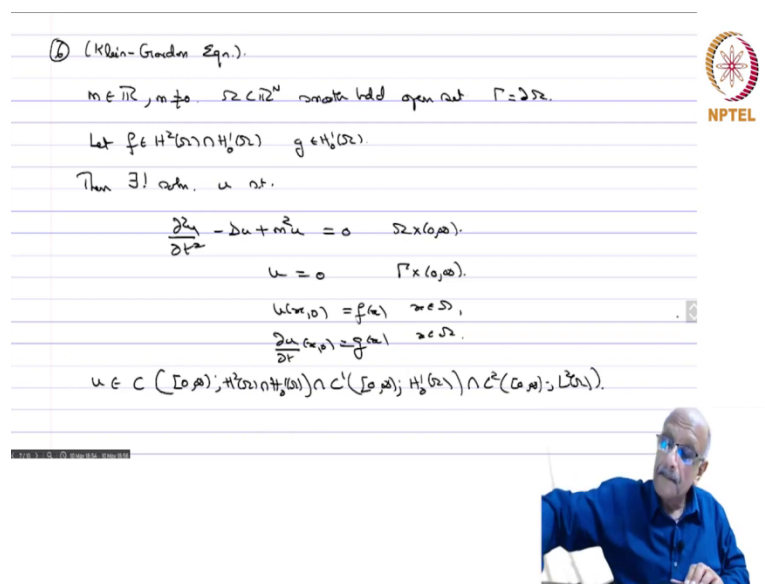 ⑥ (Klein-Gordon Eqn.).
m ∈ ℝ, m ≠ 0. Ω ⊂ ℝᴺ smooth bdd open set Γ = ∂Ω.
Let f ∈ H²(Ω) ∩ H₀¹(Ω) g ∈ H₀¹(Ω).
Then ∃! soln. u s.t.
∂²u/∂t² - Δu + m²u = 0 Ω × (0,∞).
u = 0 Γ × (0,∞).
u(x,0) = f(x) x ∈ Ω,
∂u/∂t (x,0) = g(x) x ∈ Ω.
u ∈ C ([0,∞); H²(Ω) ∩ H₀¹(Ω)) ∩ C¹([0,∞); H₀¹(Ω)) ∩ C²([0,∞); L²(Ω)).
NPTEL